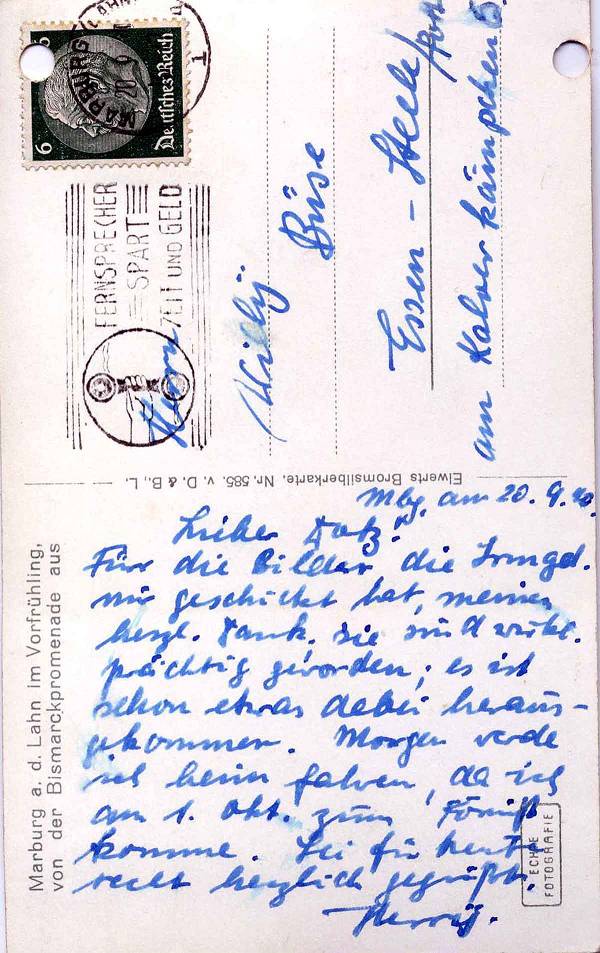 Marburg a. d. Lahn im Vorfrühling,
von der Bismarckpromenade aus
Elwerts Bromsilberkarte, Nr. 585. v. D. & B., L.
6 6
Deutsches Reich
MARBURG (LAHN
FERNSPRECHER
SPART
ZEIT UND GELD
Herrn
Willy
Büse
Essen - Steele
am Kalverkämpchen 5.
Mbg. am 20. 9. 40.
Lieber
Für die Bilder die Irmgd.
mir geschickt hat, meinen
herzl. Dank. Sie sind wirkl.
prächtig geworden; es ist
schon etwas dabei heraus-
gekommen. Morgen werde
ich heim fahren, da ich
am 1. Okt. zum
komme. Sei für heut
recht herzlich gegrüßt.
ECHTE
FOTOGRAFIE